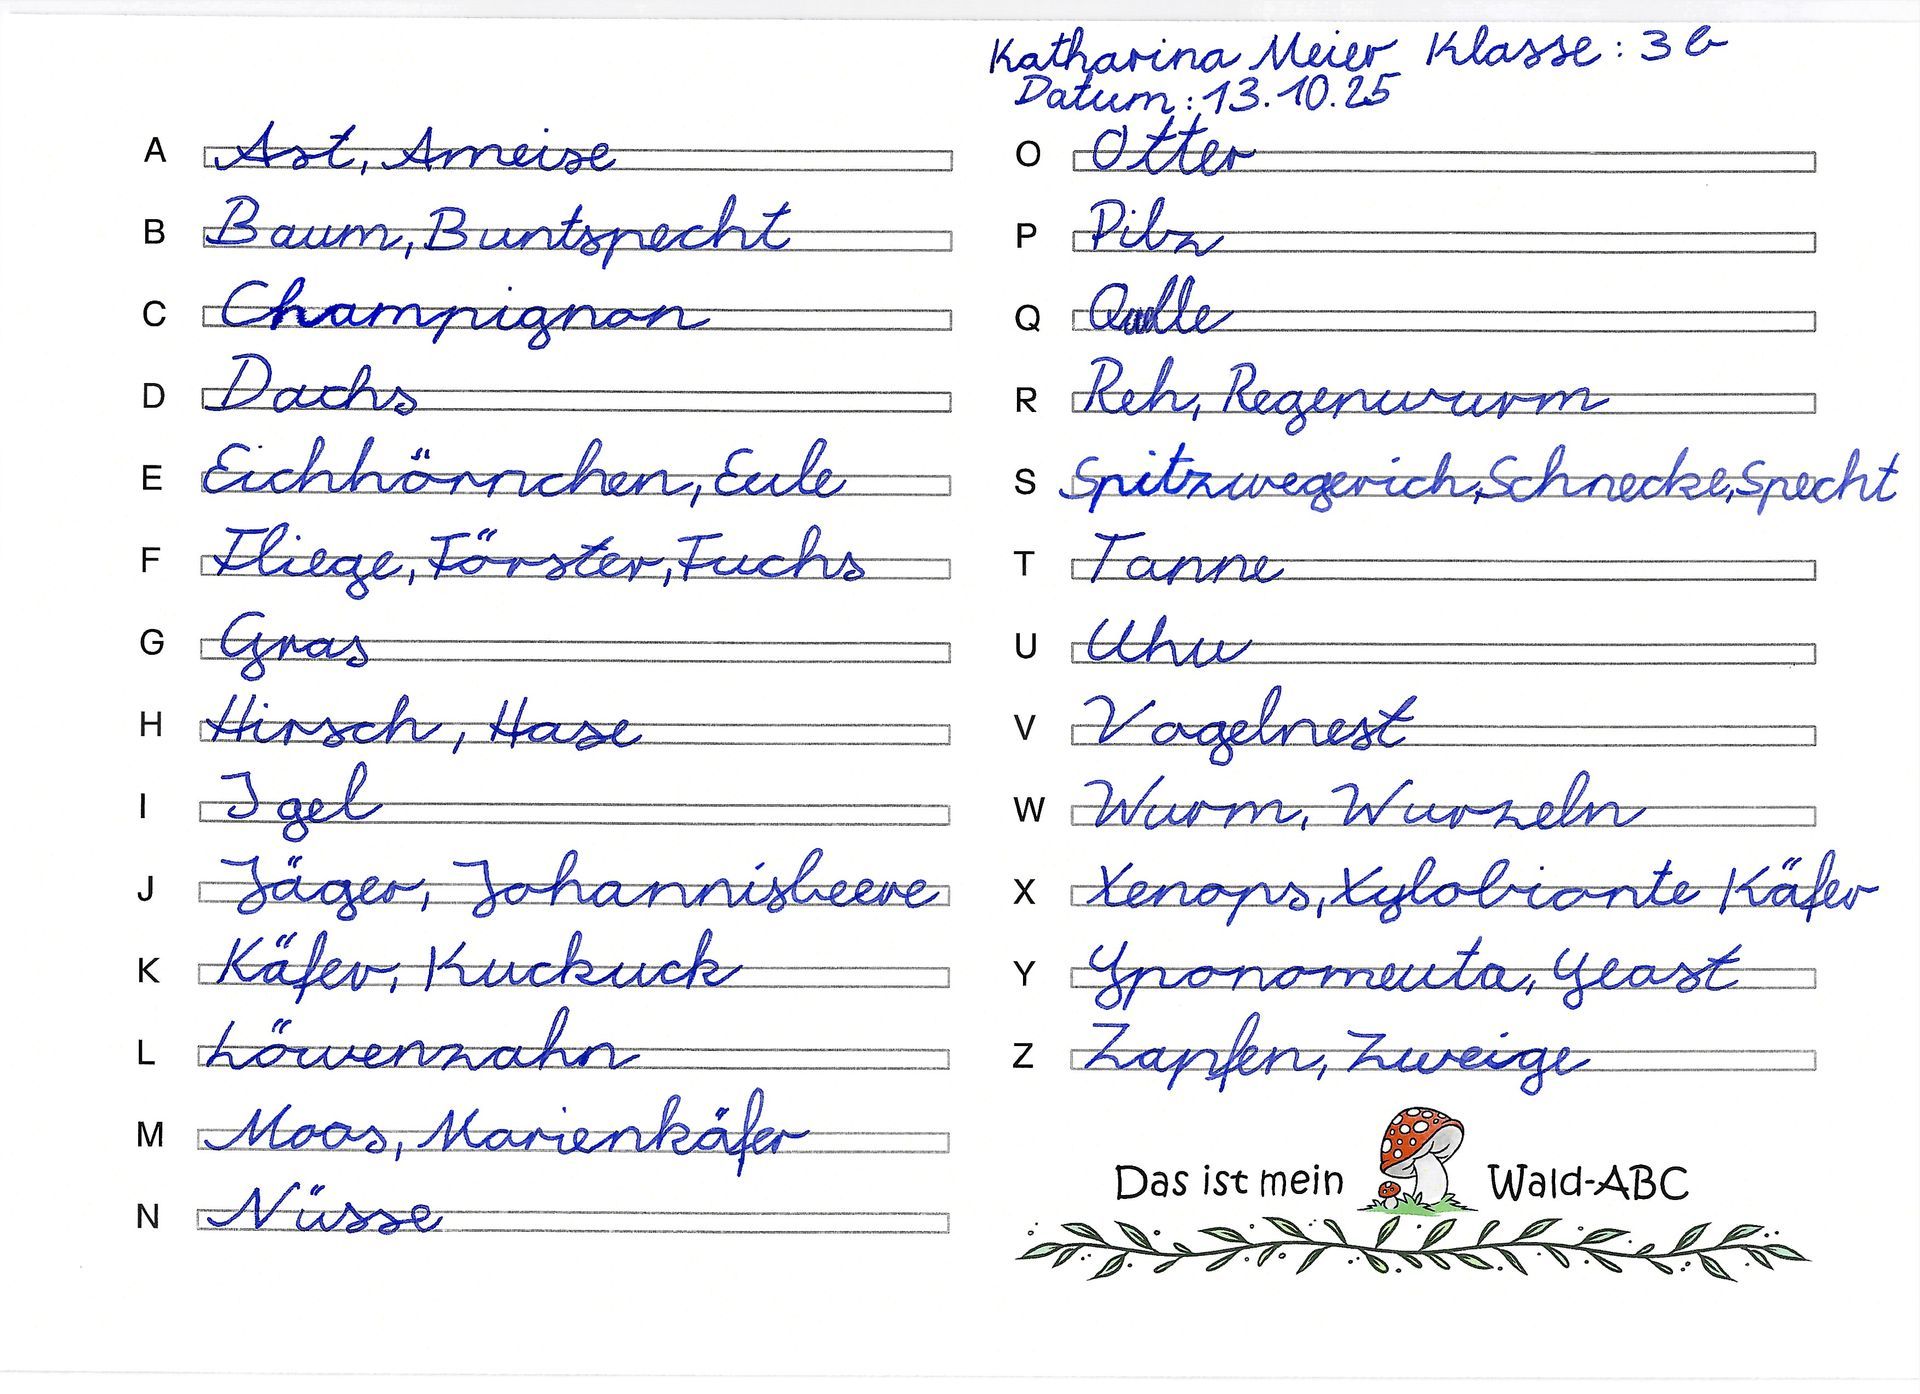 Katharina Meier Klasse: 3b
Datum: 13.10.25
A Ast, Ameise
B Baum, Buntspecht
C Champignon
D Dachs
E Eichhörnchen, Eule
F Fliege, Förster, Fuchs
G Gras
H Hirsch, Hase
I Igel
J Jäger, Johannisbeere
K Käfer, Kuckuck
L Löwenzahn
M Moos, Marienkäfer
N Nüsse
O Otter
P Pilz
Q Qualle
R Reh, Regenwurm
S Spitzwegerich, Schnecke, Specht
T Tanne
U Uhu
V Vogelnest
W Wurm, Wurzeln
X Xenops, Xylobionte Käfer
Y Yponomeuta, Yeast
Z Zapfen, Zweige
Das ist mein Wald-ABC